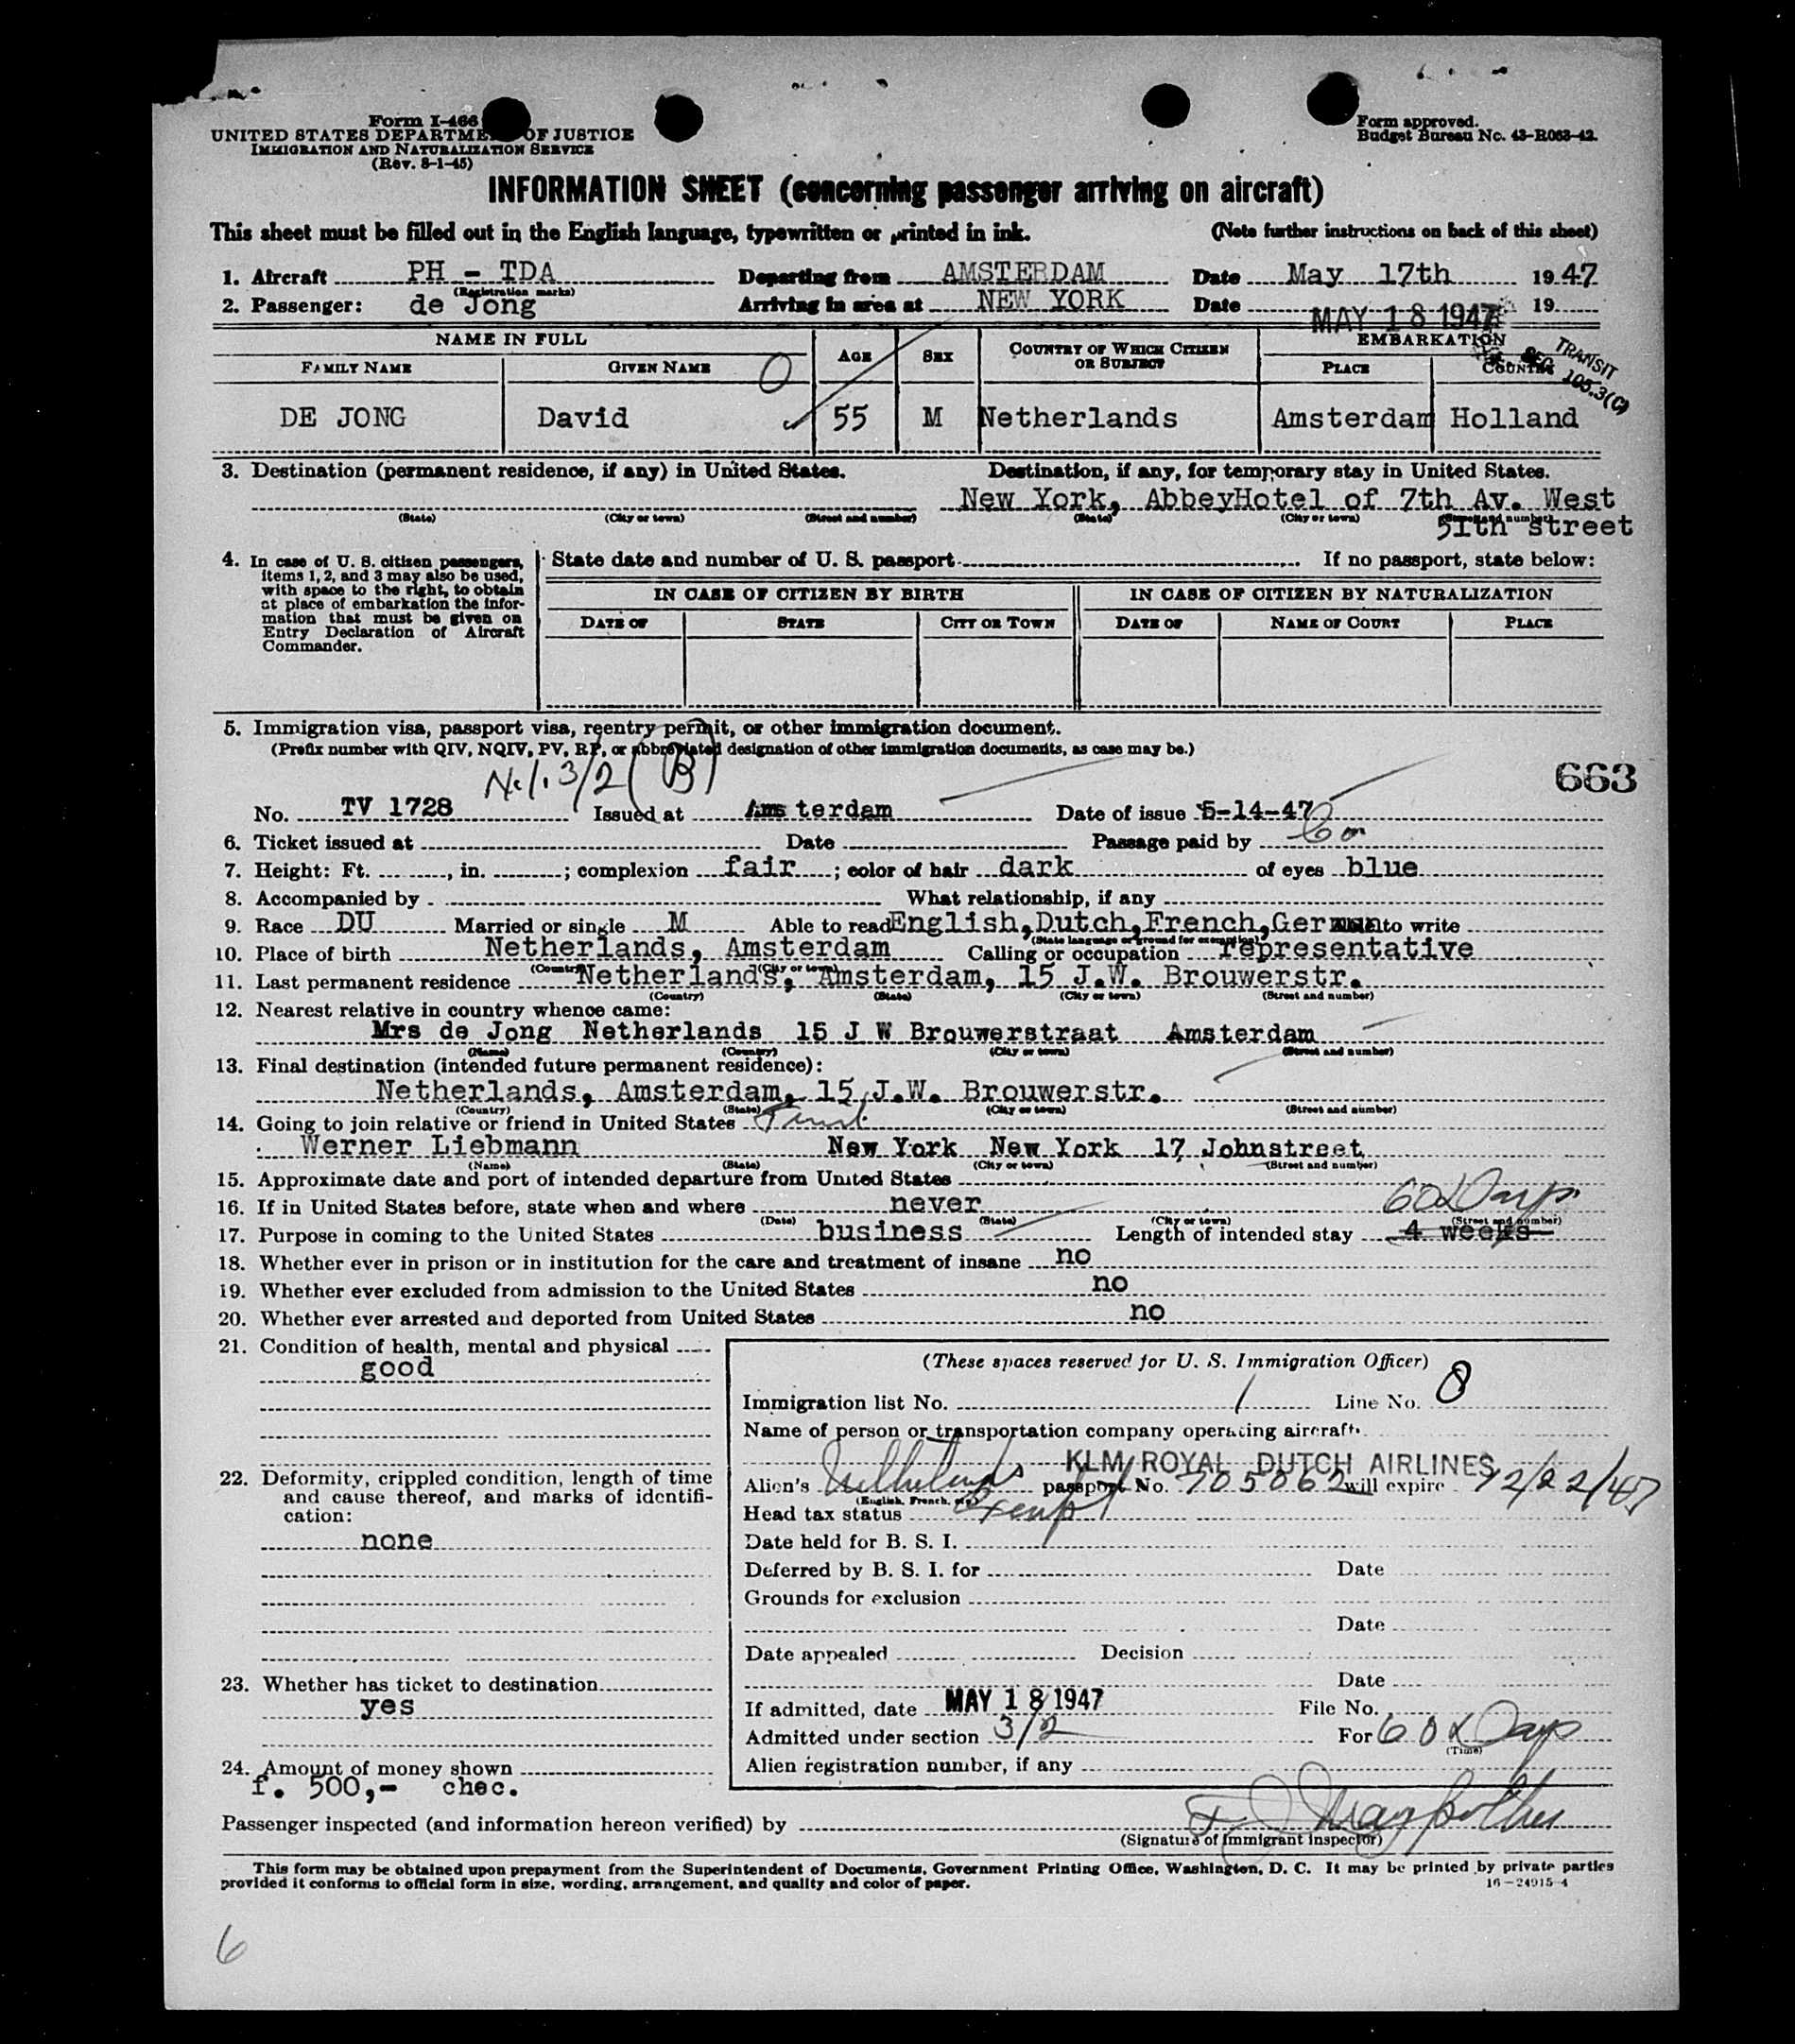 Form I-466
UNITED STATES DEPARTMENT OF JUSTICE
IMMIGRATION AND NATURALIZATION SERVICE
(Rev. 8-1-45)
Form approved.
Budget Bureau No. 43-R063-42.
INFORMATION SHEET (concerning passenger arriving on aircraft)
This sheet must be filled out in the English language, typewritten or printed in ink. (Note further instructions on back of this sheet)
1. Aircraft PH - TDA Departing from AMSTERDAM Date May 17th 1947
(Registration marks)
2. Passenger: de Jong Arriving in area at NEW YORK Date MAY 18 1947 19
NAME IN FULL AGE SEX COUNTRY OF WHICH CITIZEN OR SUBJECT EMBARKATION
FAMILY NAME GIVEN NAME PLACE COUNTRY
TRANSIT
SEC 105.3(C)
DE JONG David 55 M Netherlands Amsterdam Holland
3. Destination (permanent residence, if any) in United States. Destination, if any, for temporary stay in United States.
New York, AbbeyHotel of 7th Av. West
(State) (City or town) (Street and number) (State) (City or town) (Street and number)
51th street
4. In case of U. S. citizen passengers, items 1, 2, and 3 may also be used, with space to the right, to obtain at place of embarkation the information that must be given on Entry Declaration of Aircraft Commander.
State date and number of U. S. passport If no passport, state below:
IN CASE OF CITIZEN BY BIRTH IN CASE OF CITIZEN BY NATURALIZATION
DATE OF STATE CITY OR TOWN DATE OF NAME OF COURT PLACE
5. Immigration visa, passport visa, reentry permit, or other immigration document.
(Prefix number with QIV, NQIV, PV, RP, or abbreviated designation of other immigration documents, as case may be.)
3/2 (B)
663
No. TV 1728 Issued at Amsterdam Date of issue 5-14-47
6. Ticket issued at Date Passage paid by Co
7. Height: Ft. , in. ; complexion fair ; color of hair dark of eyes blue
8. Accompanied by What relationship, if any
9. Race DU Married or single M Able to read English,Dutch,French,German to write
(State language or ground for exemption)
10. Place of birth Netherlands, Amsterdam Calling or occupation representative
(Country) (City or town)
11. Last permanent residence Netherlands, Amsterdam, 15 J.W. Brouwerstr.
(Country) (State) (City or town) (Street and number)
12. Nearest relative in country whence came:
Mrs de Jong Netherlands 15 J W Brouwerstraat Amsterdam
(Name) (Country) (City or town) (Street and number)
13. Final destination (intended future permanent residence):
Netherlands, Amsterdam, 15 J.W. Brouwerstr.
(Country) (State) (City or town) (Street and number)
14. Going to join relative or friend in United States
Werner Liebmann New York New York 17 Johnstreet
(Name) (State) (City or town) (Street and number)
15. Approximate date and port of intended departure from United States
16. If in United States before, state when and where never 60 Days
(Date) (State) (City or town) (Street and number)
17. Purpose in coming to the United States business Length of intended stay 4 weeks
18. Whether ever in prison or in institution for the care and treatment of insane no
19. Whether ever excluded from admission to the United States no
20. Whether ever arrested and deported from United States no
21. Condition of health, mental and physical
good
22. Deformity, crippled condition, length of time and cause thereof, and marks of identification:
none
23. Whether has ticket to destination
yes
24. Amount of money shown
f. 500,- chec.
(These spaces reserved for U. S. Immigration Officer)
Immigration list No. 1 Line No. 8
Name of person or transportation company operating aircraft
KLM ROYAL DUTCH AIRLINES
Alien's Netherlands passport No. 705062 will expire 12/22/47
(English, French, etc.)
Head tax status Exempt
Date held for B. S. I.
Deferred by B. S. I. for Date
Grounds for exclusion
Date
Date appealed Decision
Date
If admitted, date MAY 18 1947 File No.
Admitted under section 3/2 For 60 Days
(Time)
Alien registration number, if any
Passenger inspected (and information hereon verified) by
(Signature of Immigrant Inspector)
This form may be obtained upon prepayment from the Superintendent of Documents, Government Printing Office, Washington, D. C. It may be printed by private parties
provided it conforms to official form in size, wording, arrangement, and quality and color of paper. 16-24915-4
6